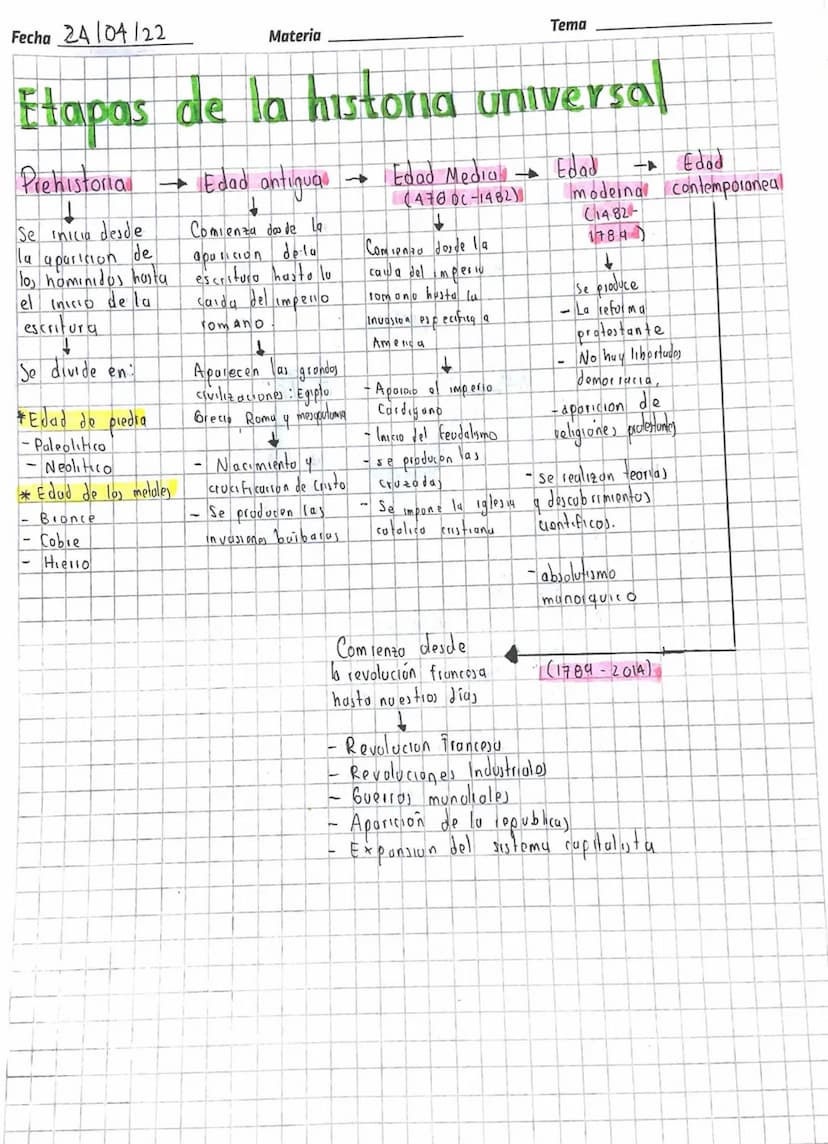 Fecha 24/04/22 Materia Tema
Etapas de la historia universal
Prehistoria → Edad antigua → Edad Media → Edad moderna → Edad contemporanea
(476 DC-1482)
(1482-
1789)
Se inicia desde
la aparicion de
los hominidos hasta
el inicio de la
escritura
Se divide en:
*Edad de piedra
- Paleolitico
- Neolitico
* Edad de los metales
- Bronce
- Cobre
- Hierro
Comienza desde la
aparicion de la
escritura hasta la
caida del imperio
romano.
Aparecen las grandes
civilizaciones: Egipto
Grecia Roma y mesopotamia
- Nacimiento y
crucificacion de Cristo
- Se producen las
invasiones barbaras
Comienza desde la
caida del imperio
romano hasta la
invasion especifica a
America
- Aparaio el imperio
- Inicio del feudalismo
- se producen las
cruzadas
- Se impone la iglesia
catolica cristiana
se produce
- La reforma
protestante
- No hay libertades
democracia,
- aparicion de
religiones protestantes
- se realizan teorias
y descubrimientos
cientificos.
- absolutismo
monarquico
(1789-2014)
Comienzo desde
la revolución francesa
hasta nuestros días
- Revolucion Francesa
- Revoluciones Industriales
- Guerras mundiales
- Aparición de la republicas
- Expansion del sistema capitalista